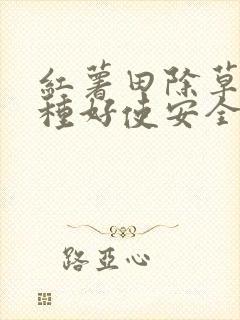 紅薯田除草
種好使安全
路亞心